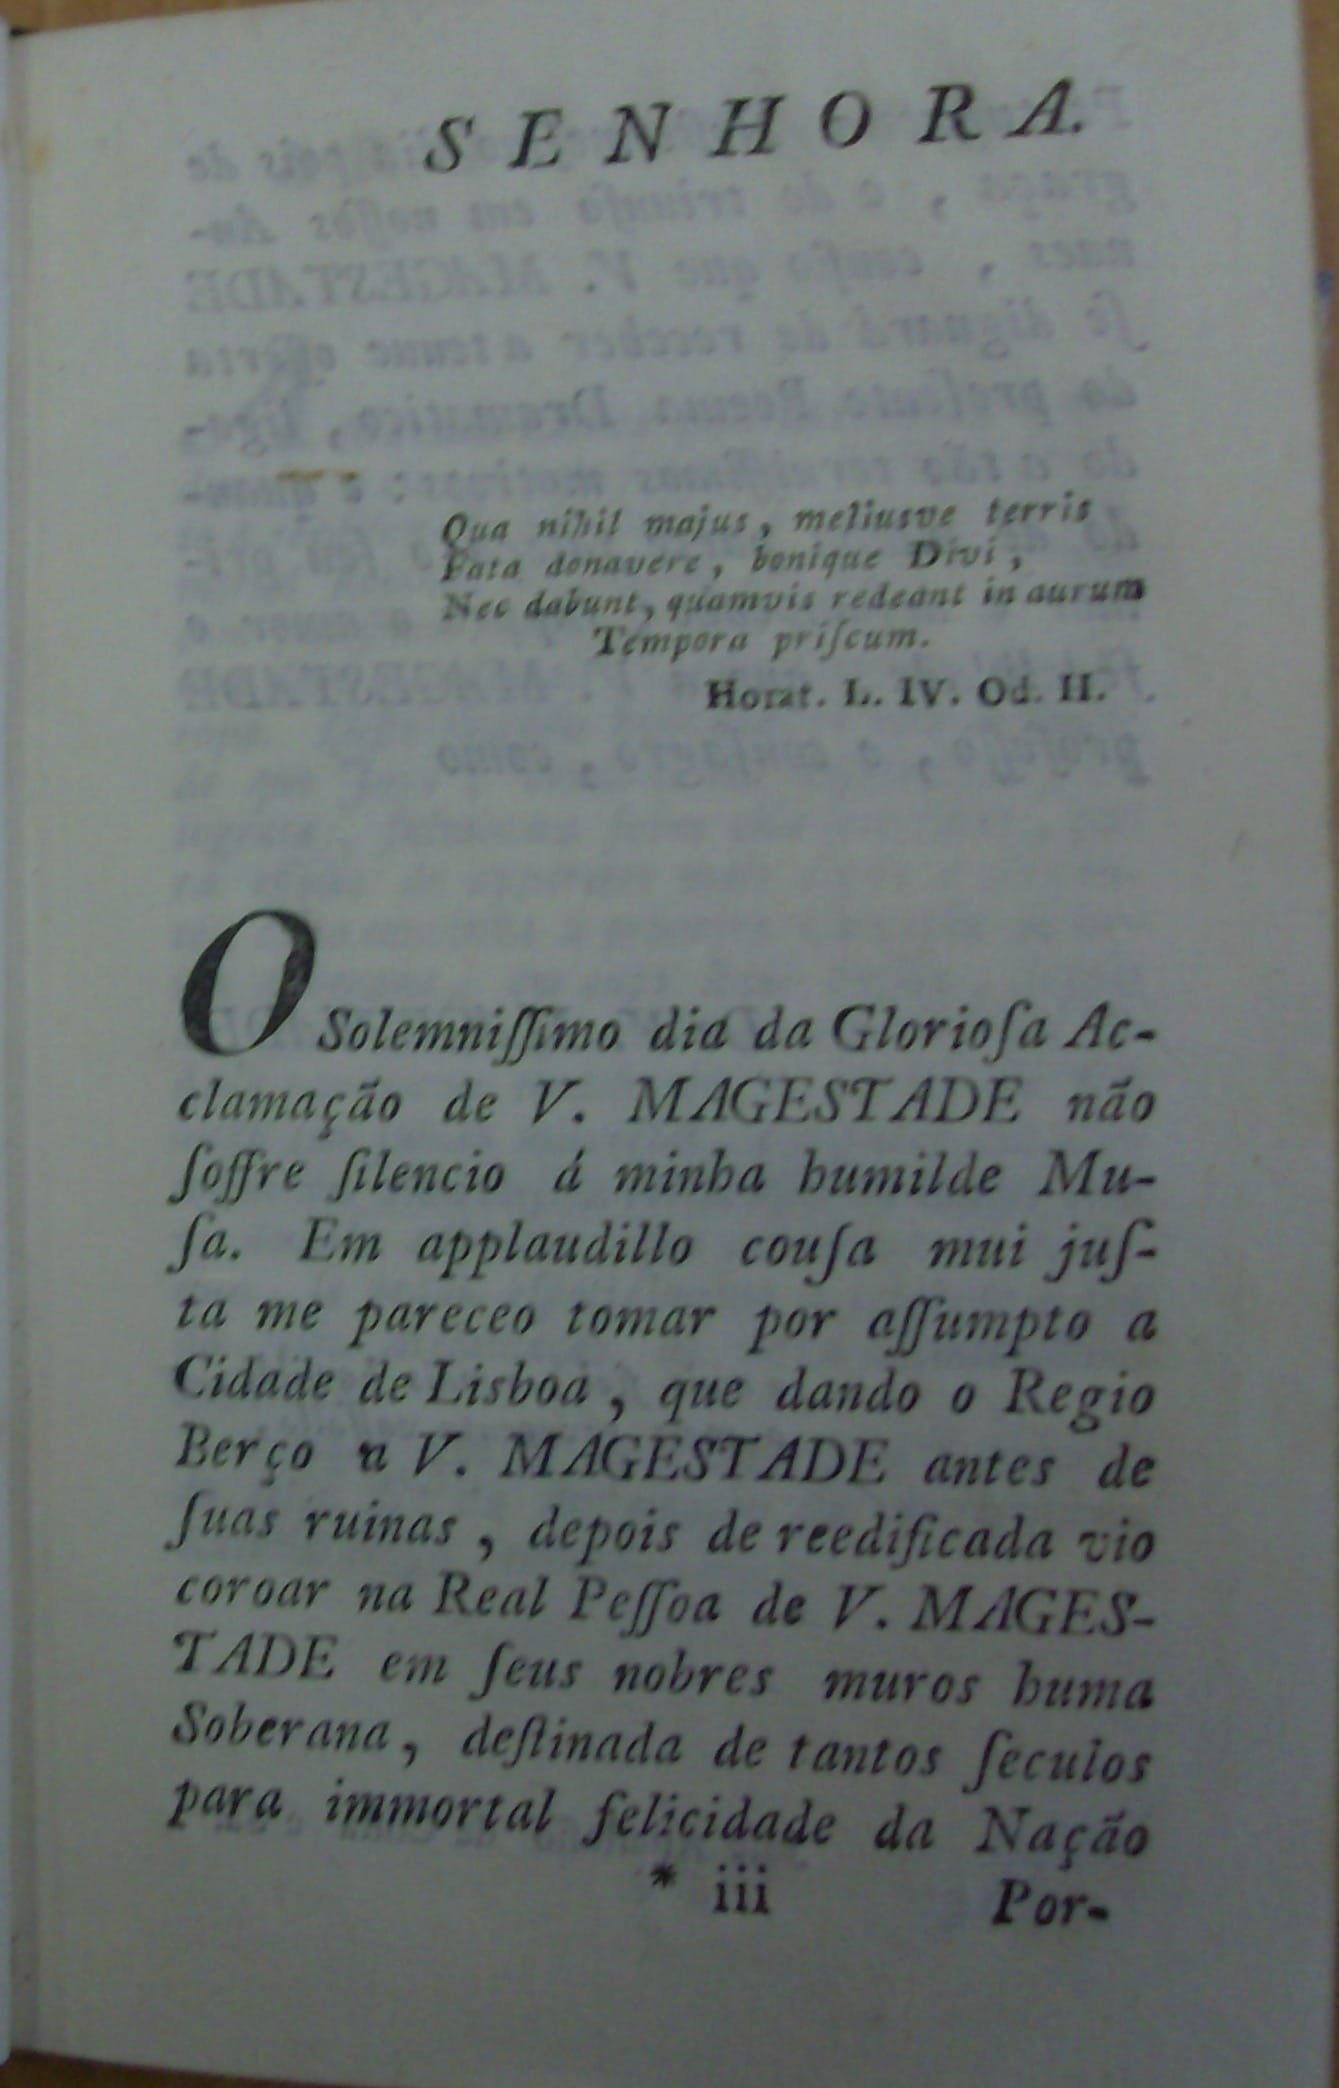 SENHORA.
Qua nihil majus, meliusve terris
Fata donavere, bonique Divi,
Nec dabunt, quamvis redeant in aurum
Tempora priſcum.
Horat. L. IV. Od. II.
O Solemniſſimo dia da Glorioſa Ac-
clamação de V. MAGESTADE não
ſoffre ſilencio á minha humilde Mu-
ſa. Em applaudillo couſa mui juſ-
ta me pareceo tomar por aſſumpto a
Cidade de Lisboa, que dando o Regio
Berço a V. MAGESTADE antes de
ſuas ruinas, depois de reedificada vio
coroar na Real Peſſoa de V. MAGES-
TADE em ſeus nobres muros huma
Soberana, deſtinada de tantos ſeculos
para immortal felicidade da Nação
* iii Por-